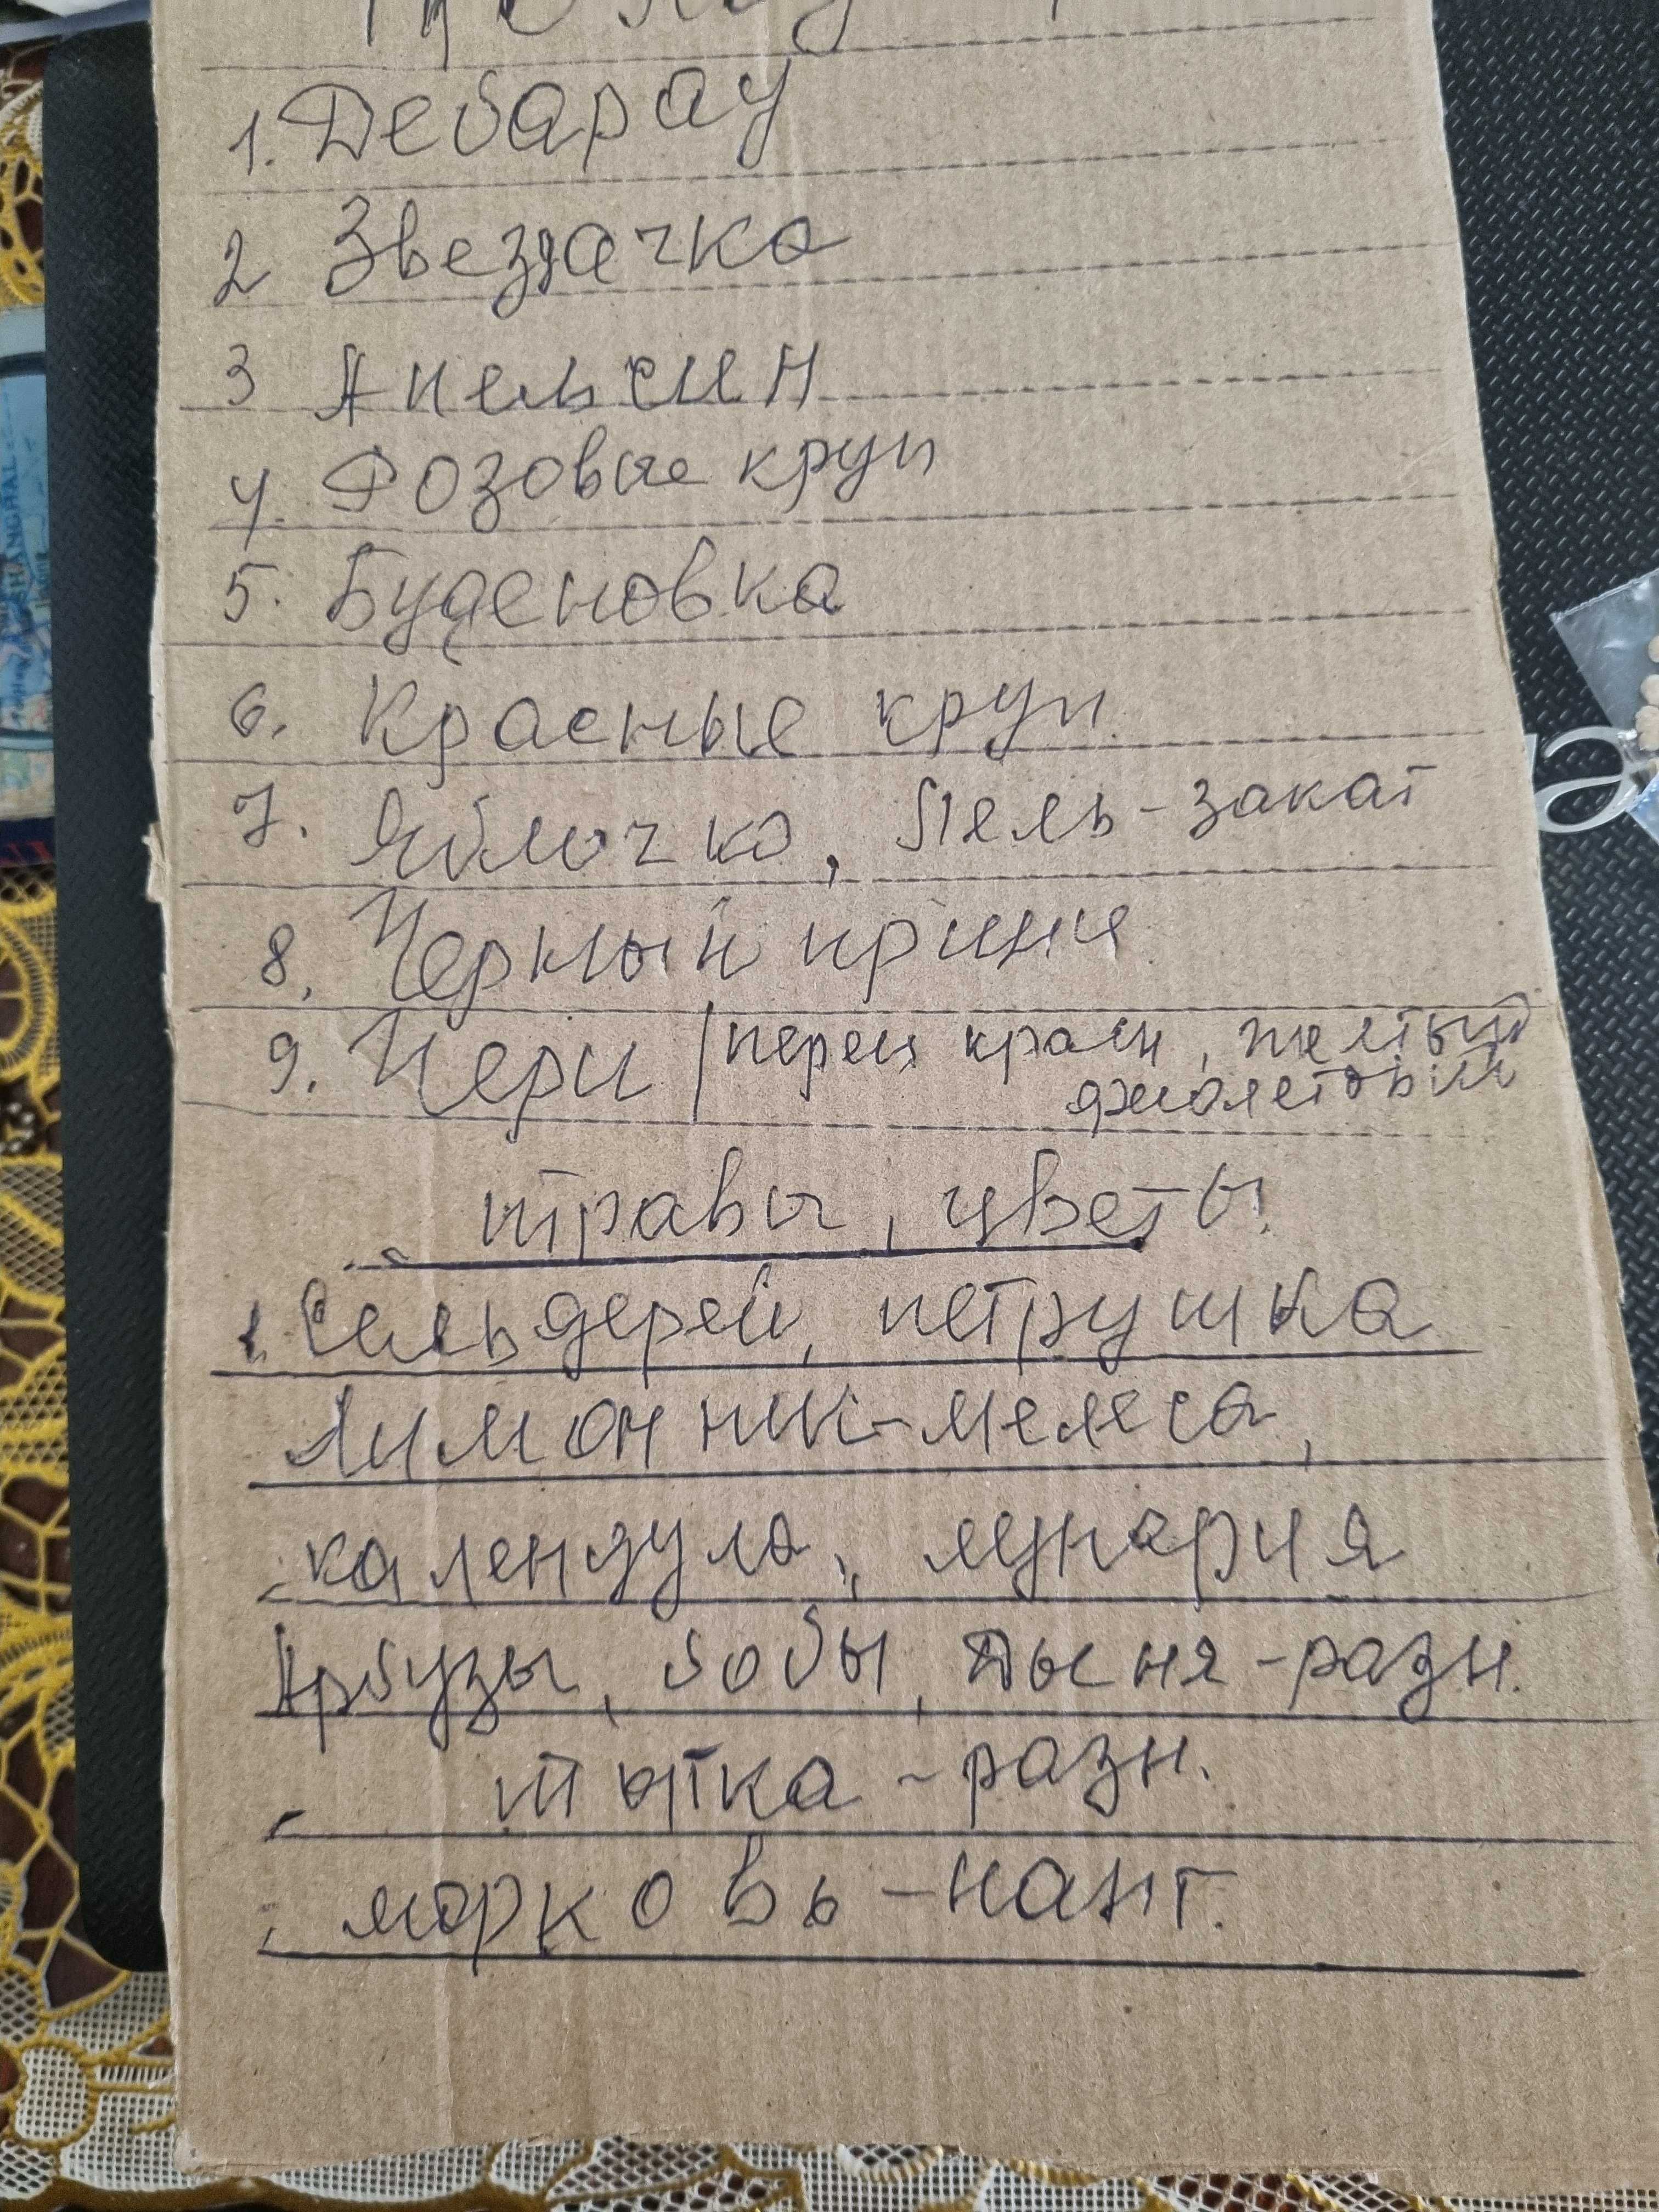 1. Дебарау
2 Звездачка
3 Апельсин
4. Розовые круп
5. Буденовка
6. Красные круп.
7. Яблочко, Пель-закат
8. Черный принц
9. Чери / перец красн, желтый
фиолетовый
травы, цветы.
1. Сельдерей, петрушка
Лимонник-мелеса,
календула, лунария
Арбузы, бобы, Дыня-разн.
тыпка-разн.
морковь-нант.